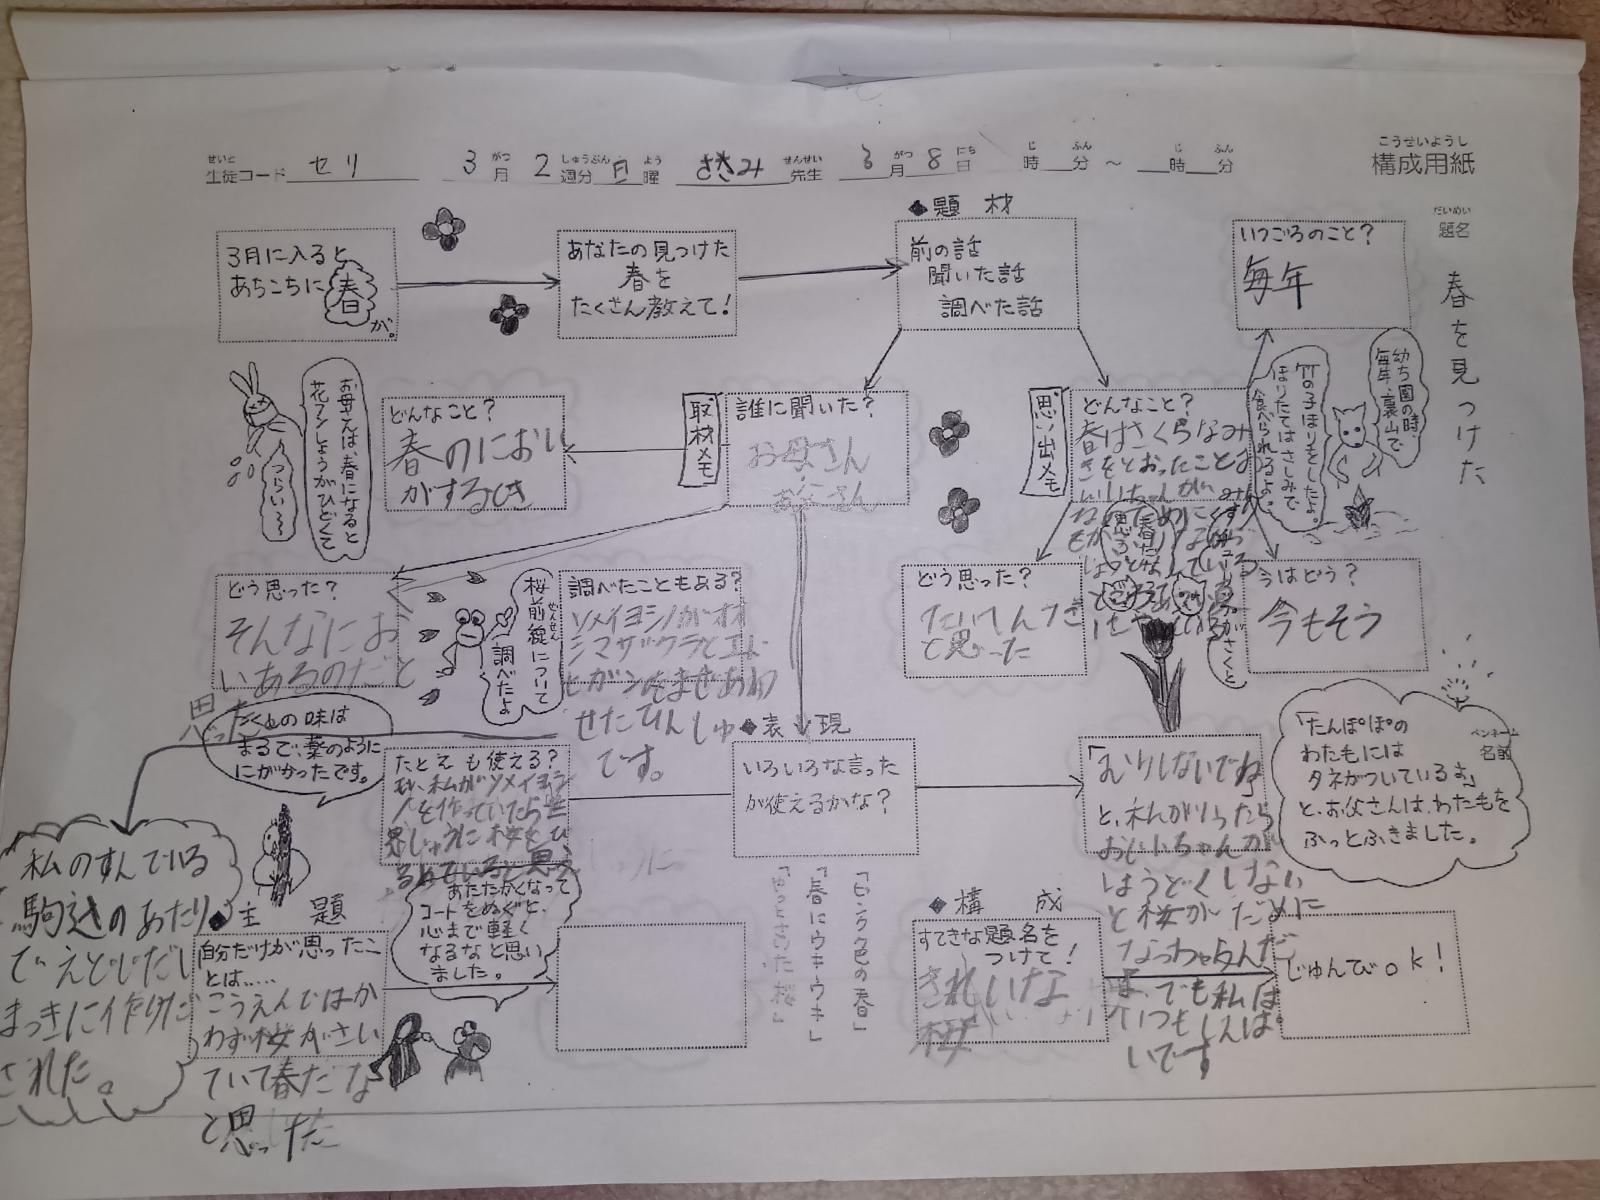 こうせいようし
構成用紙
せいと
生徒コード セリ
3 がつ 月 2 しゅうぶん 週分 月 よう 曜
ささみ せんせい 先生
3 がつ 月 8 にち 日
じ 時 ふん 分 ～ じ 時 ふん 分
だいめい
題名
春を見つけた
ペンネーム
名前
3月に入ると
あちこちに春
が。
あなたの見つけた
春を
たくさん教えて！
◆題 材
前の話
聞いた話
調べた話
いつごろのこと？
毎年
幼ち園の時、
毎年、裏山で
竹の子ほりをしたよ。
ほりたてはさしみで
食べられるよ。
思い出メモ
どんなこと？
春はさくらなみ
きをとおったことは
どう思った？
たいへんだ
と思った
今はどう？
今もそう
取材メモ
誰に聞いた？
お母さん
お父さん
どんなこと？
春のにおい
がするとき
お母さんは、春になると
花フンしょうがひどくて
つらい〜
どう思った？
そんなにお
いあるのだと
思った
調べたこともある？
ソメイヨシノがオオ
シマザクラとエド
ヒガンをまぜあわ
せたひんしゅ
です。
桜前線について
ぜんせん
調べたよ
◆表 現
いろいろな言った
が使えるかな？
たとえも使える？
私がソメイヨシ
ノを作っていたら世
界じゅうに桜をひ
ろめていると思う
の味は
まるで、薬のように
にがかったです。
「むりしないでね」
と、私がいったら
おじいちゃんが
しょうどくしない
と桜がだめに
なっちゃうんだ
よ。でも私は
いつもしんぱ
いです
「たんぽぽの
わたもには
タネがついているよ」
と、お父さんは、わたもを
ふっとふきました。
私のすんでいる
駒込のあたり
でえどじだい
まっきに作りだ
された。
◆主 題
自分だけが思ったこ
とは……
こうえんではか
わず桜がさい
ていて春だな
と思った
あたたかくなって
コートをぬぐと、
心まで軽く
なるなと思い
ました。
「ピンク色の春」
「春にウキウキ」
◆構 成
すてきな題名を
つけて！
きれいな
桜
じゅんびok！